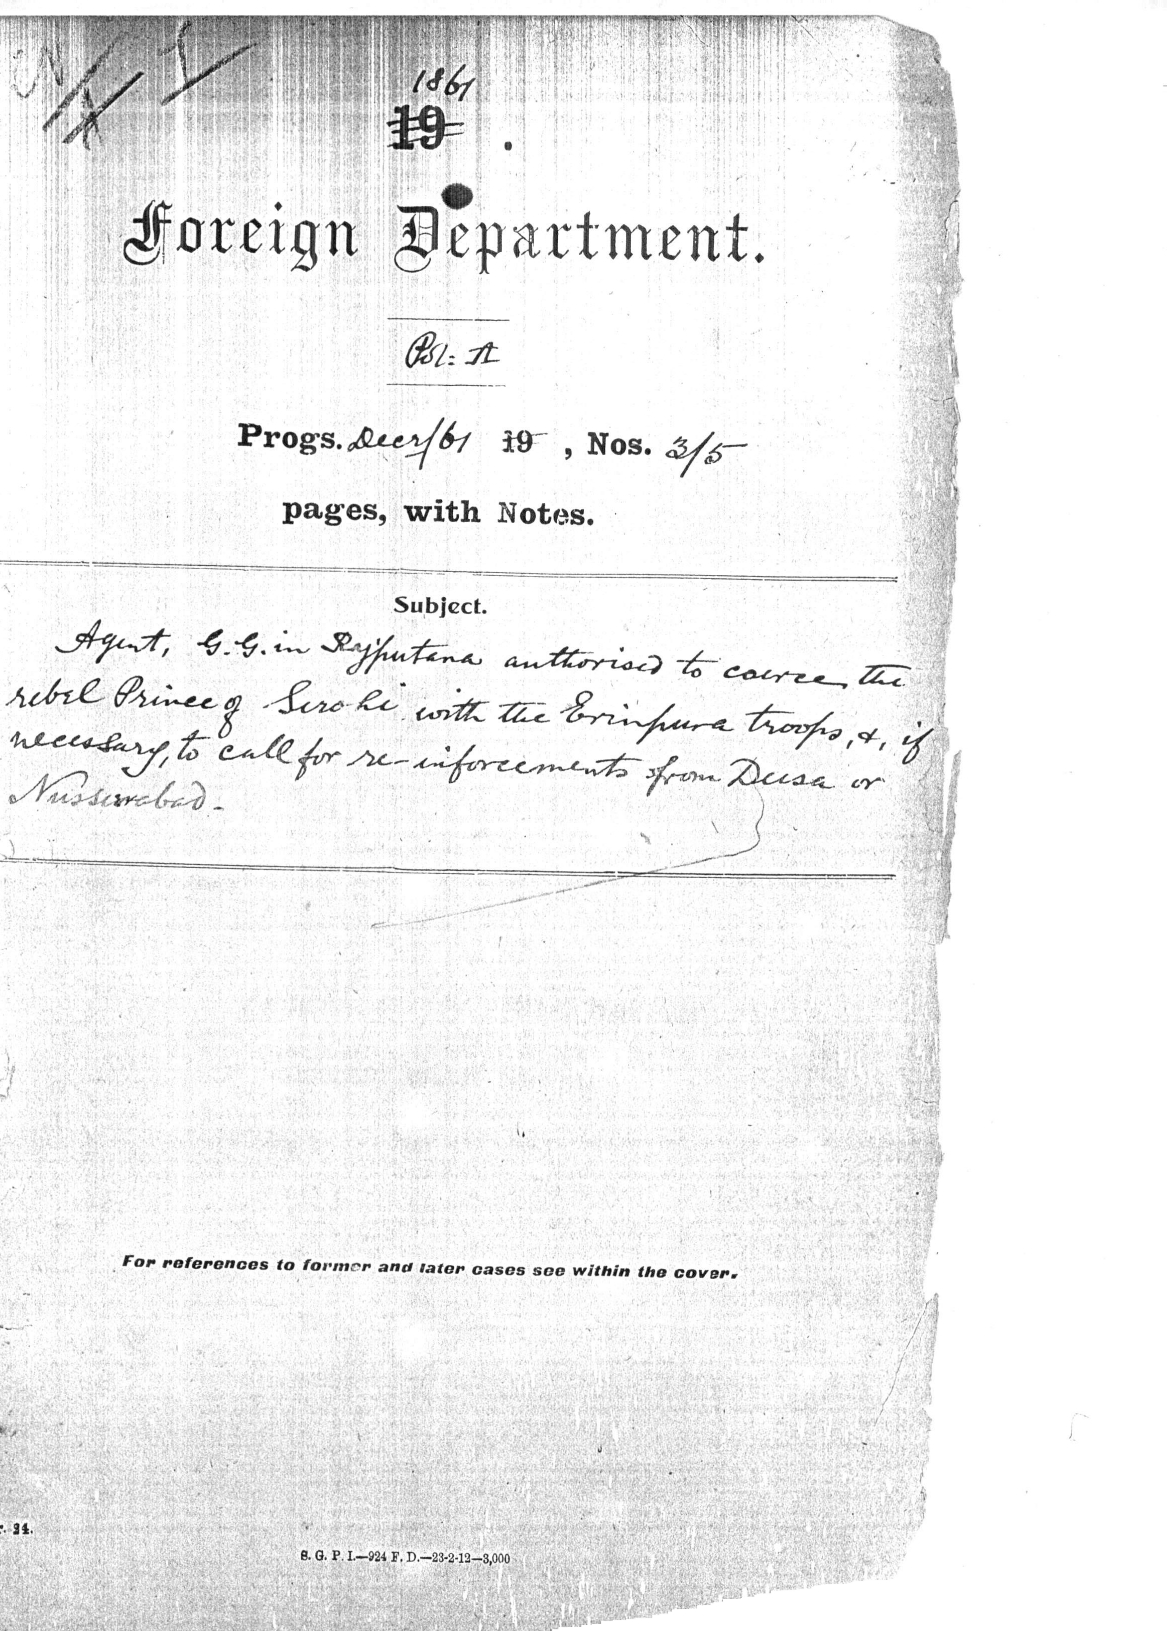 1861
19 .
Foreign Department.
Pol: A
Progs. Decr/61 19 , Nos. 3/5
pages, with Notes.
Subject.
Agent, G.G. in Rajputana authorised to coerce the
rebel Prince of Serohi with the Erinpura troops, &, if
necessary, to call for re-inforcements from Deesa or
Nusseerabad.
For references to former and later cases see within the cover.
. 24.
S. G. P. I.—924 F. D.—23-2-12—3,000